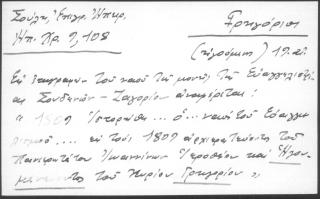 Σούλη, Ἐπιγρ. Ἠπειρ. Γρηγόριος
Ἠπ. Χρ. 9, 108 (ἡγούμενος) 19. αἰ.
Ἐξ ἐπιγραφῆς τοῦ ναοῦ τῆς μονῆς τῆς Εὐαγγελιστρί-
ας Σουδενῶν - Ζαγορίου ἀναφέρεται:
" 1809 Ἱστορήθη ... ὁ ... ναὸς τοῦ Εὐαγγε
λισμοῦ .... ἐν τούς 1809 ἀρχιερατεύοντος τοῦ
Πανιερωτάτου Ἰωαννίνων Ἱεροθέου καὶ Ἡγου-
μενεύοντος τοῦ Κυρίου Γρηγορίου "